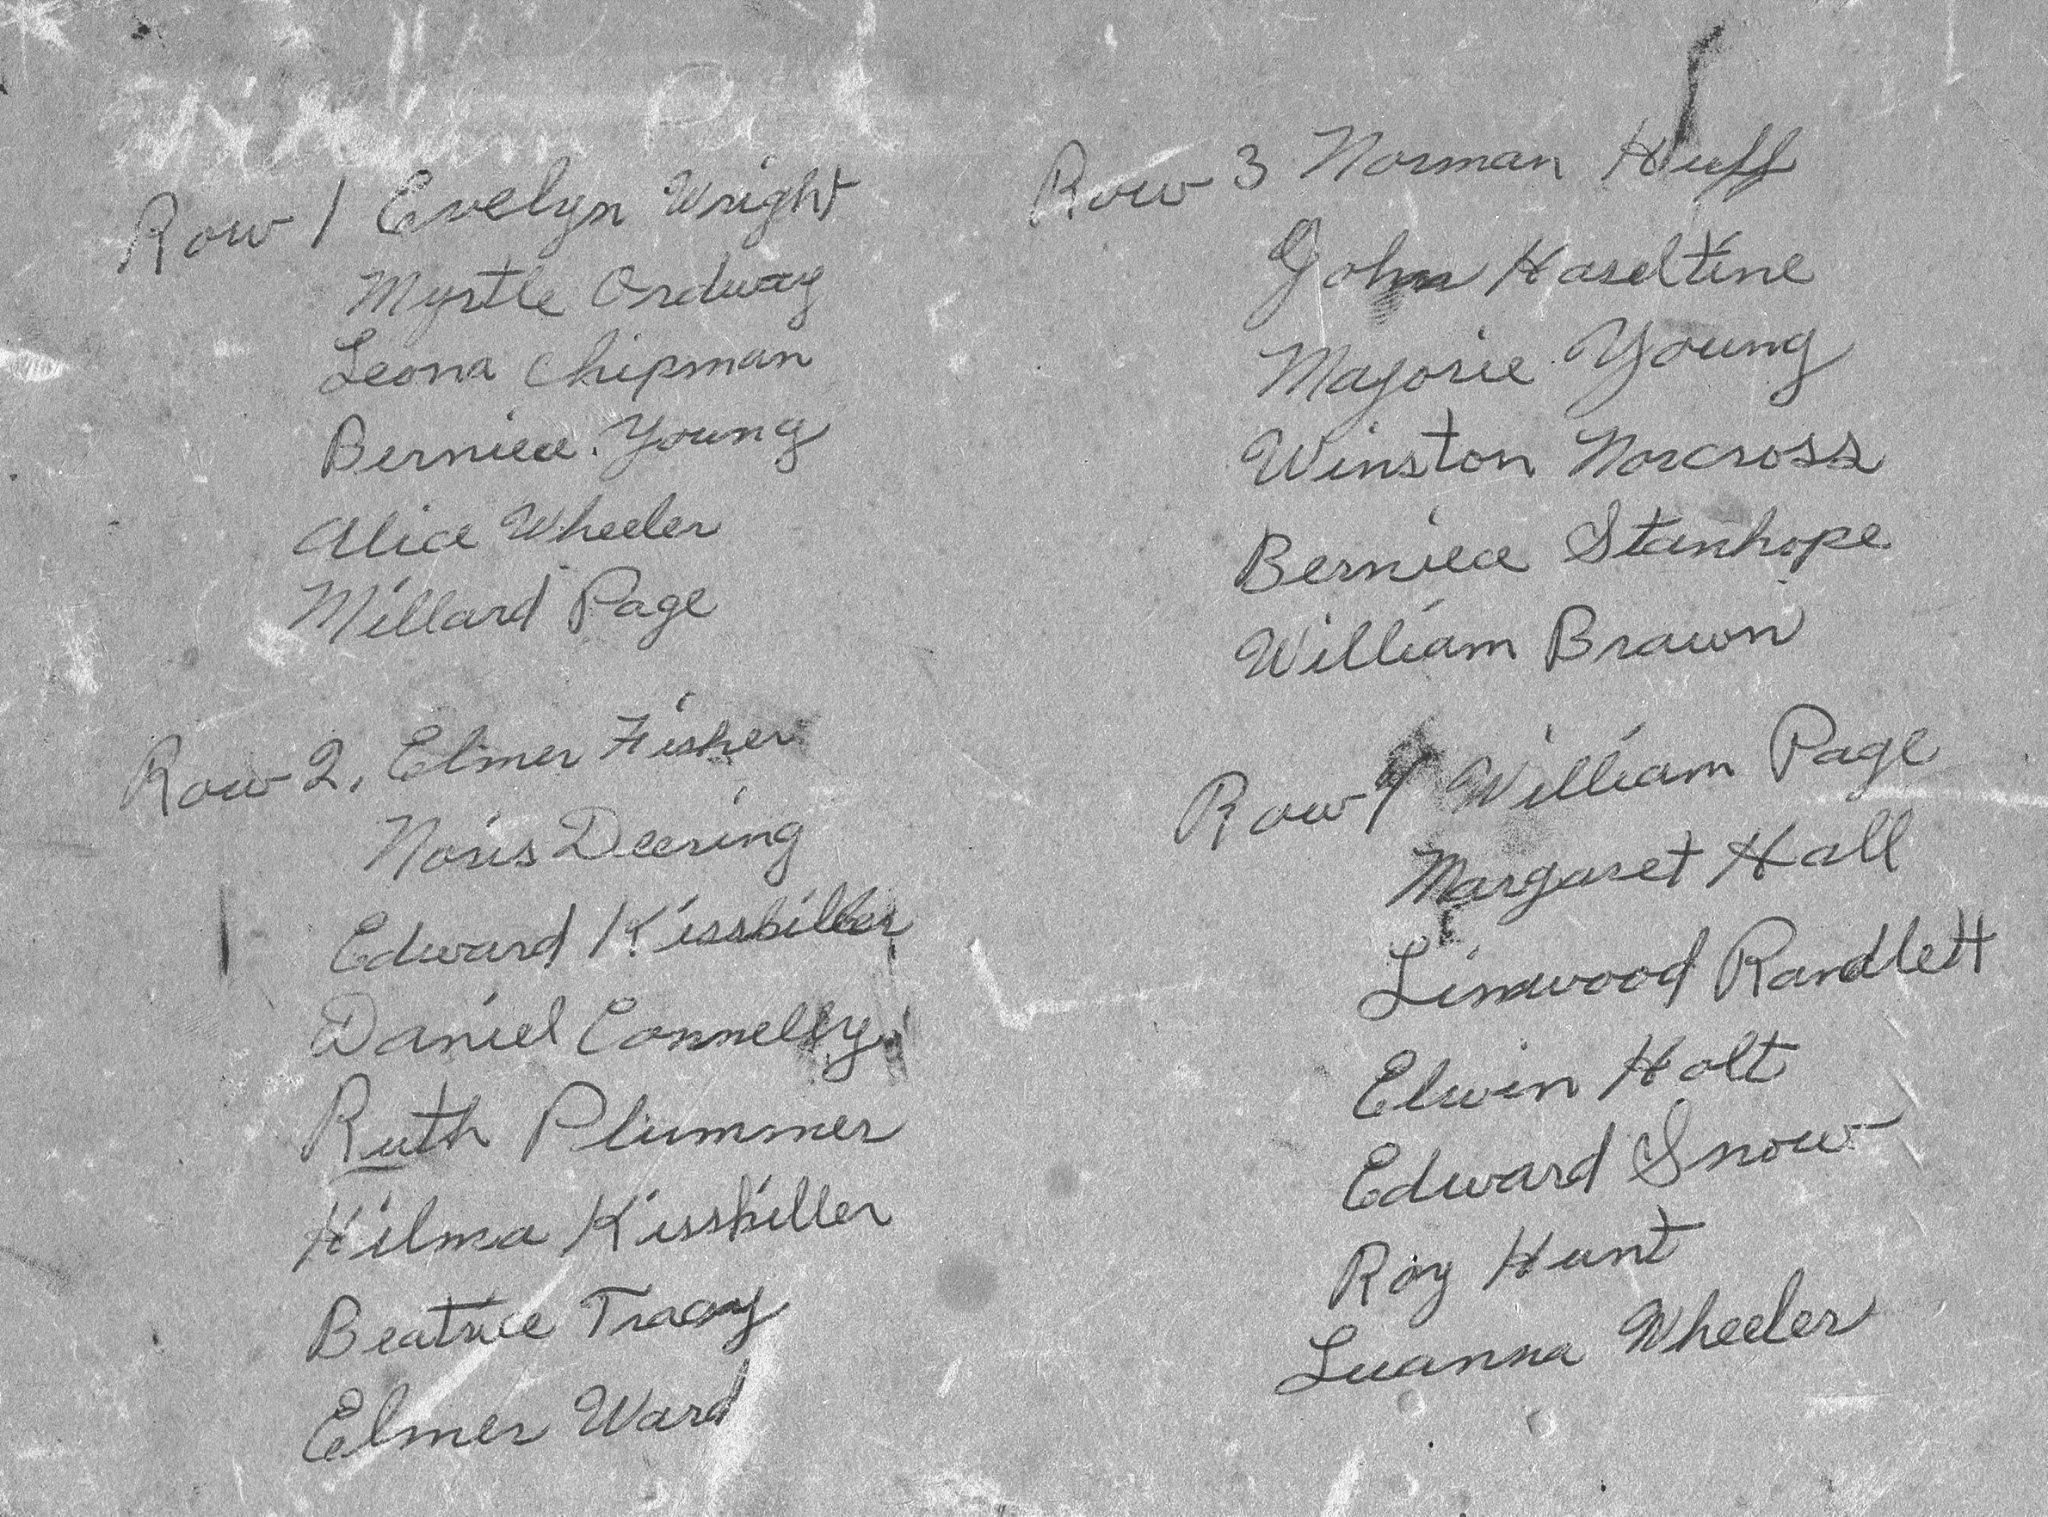 Row 1 Evelyn Wright
Myrtle Ordway
Leona Chipman
Berniece Young
Alice Wheeler
Millard Page
Row 2, Elmer Fisher
Noris Deering
Edward Kisskiller
Daniel Connelly
Ruth Plummer
Hilma Kisskiller
Beatrice Tracy
Elmer Ward
Row 3 Norman Huff
John Haseltine
Majorie Young
Winston Norcross
Berniece Stanhope
William Brawn
Row 4 William Page
Margaret Hall
Linwood Randlett
Elwin Holt
Edward Snow
Roy Hunt
Luanna Wheeler